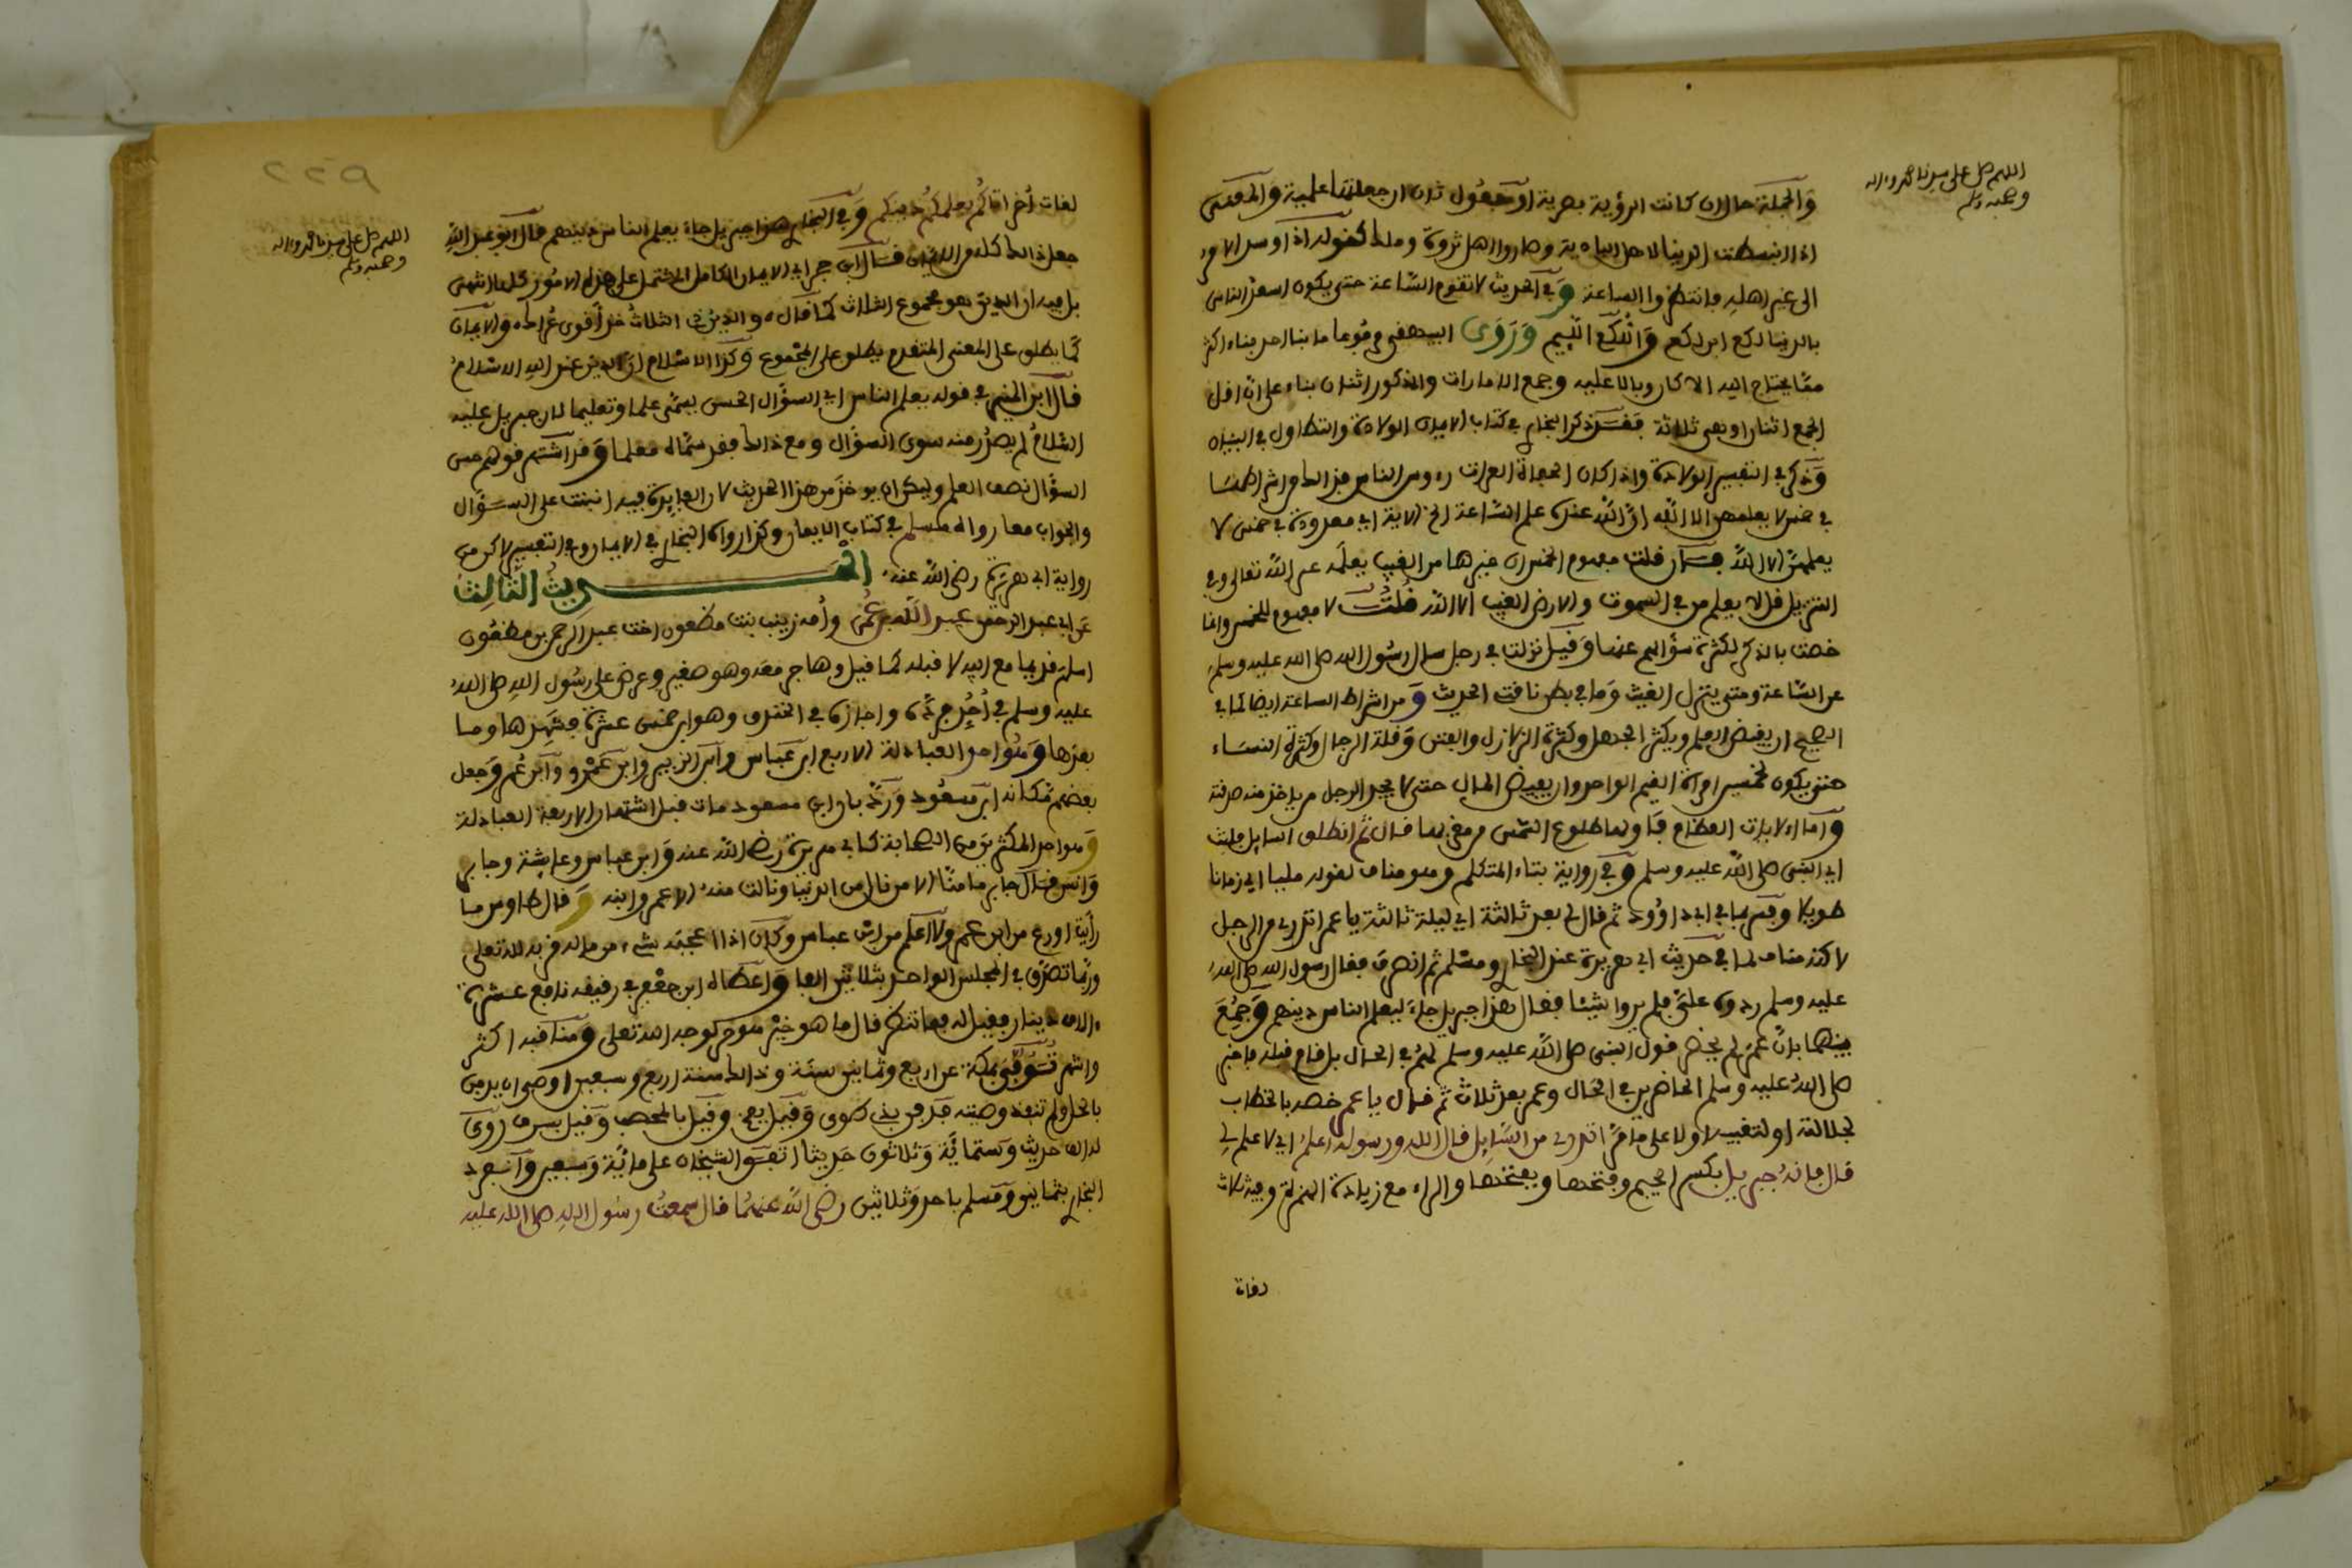 اللهم صل على سيدنا محمد وءاله
وصحبه وسلم
والجملة حال ان كانت الرؤية بصرية او مفعول ثان ان جعلتها علمية والمقتضى
اذا انبسطت الدنيا لاهل البادية وصاروا اهل ثروة وملك كقوله اذا وسد الامر
الى غير اهله فانتظروا الساعة وفي الحديث لا تقوم الساعة حتى يكون اسعد الناس
بالدنيا لكع ابن لكع واللكع اللئيم وروى البيهقي مرفوعا ما بنا احد بناء اكثر
مما يحتاج اليه الا كان وبالا عليه وجمع الامارات والمذكور اثنان بناء على ان اقل
الجمع اثنان او هي ثلاثة فقد ذكر البخاري في كتاب الايمان الولادة والتطاول في البنيان
وذكر في التفسير الولادة واذا كان الحفاة العراة رءوس الناس فذاك من اشراطها
في خمس لا يعلمهن الا الله ان الله عنده علم الساعة الخ الاية اي معدودة في خمس لا
يعلمهن الا الله فان قلت مفهوم الخمس ان غيرها من الغيب يعلمه غير الله تعالى وفي
التنزيل قل لا يعلم من في السموت والارض الغيب الا الله قلت لا مفهوم للخمس وانما
خصت بالذكر لكثرة سؤالهم عنها وقيل نزلت في رجل سال رسول الله صلى الله عليه وسلم
عن الساعة ومتى ينزل الغيث وما في بطن ناقته الحديث ومن اشراط الساعة ايضا كما في
الصحيح ان يقبض العلم ويكثر الجهل وكثرة الزلازل والفتن وقلة الرجال وكثرة النساء
حتى يكون لخمسين امراة القيم الواحد وان يفيض المال حتى لا يجد الرجل من ياخذ منه صدقته
واما الايات العظام فاولها طلوع الشمس من مغربها قال ثم انطلق السايل فلبث
اي النبي صلى الله عليه وسلم وفي رواية بتاء المتكلم وهو مناف لقوله مليا اي زمانا
طويلا وفسر بما في ابي داوود ثم قال لي بعد ثالثة اي ليلة ثالثة يا عمر اتدري من الرجل
لاكنه مناف لما في حديث ابي هريرة عند البخاري ومسلم ثم انصرف فقال رسول الله صلى الله
عليه وسلم ردوه علي فلم يروا شيئا فقال هذا جبريل جاء ليعلم الناس دينهم وجمع
بينهما بان عمر لم يحضر قول النبي صلى الله عليه وسلم لهم في الحال بل قام قبله فاخبر
صلى الله عليه وسلم الحاضرين في الحال وعمر بعد ثلاث ثم قال يا عمر خصه بالخطاب
لجلالته اولا على ما مر اتدري من السايل قال الله ورسوله اعلم اي لا علم لي
قال فانه جبريل بكسر الجيم وفتحها وبفتحها والراء مع زيادة الهمزة وفيه ثلاث
اللهم صل على سيدنا محمد وءاله
وصحبه وسلم
لغات اخر اتاكم يعلمكم دينكم وفي البخاري هذا جبريل جاء يعلم الناس دينهم قال ابو عبد الله
جعل ذالك كله من الايمان قال ابن حجر اي الايمان الكامل المشتمل على هذه الامور كلها انتهى
بل فيه ان الدين هو مجموع الثلاث كما قال والدين ذي الثلاث خذ اقوى عراك والايمان
كما يطلق على المعنى المتقدم يطلق على المجموع وكذا الاسلام ان الدين عند الله الاسلام
قال ابن المنير في قوله يعلم الناس اي السؤال الحسن يسمى علما وتعليما لان جبريل عليه
السلام لم يصدر منه سوى السؤال ومع ذالك فقد سماه معلما وقد اشتهر قولهم حسن
السؤال نصف العلم ويمكن ان يوخذ من هذا الحديث لان الفايدة فيه انبنت على السؤال
والجواب معا رواه مسلم في كتاب الايمان وكذا رواه البخاري في الايمان وفي التفسير لاكن من
رواية ابي هريرة رضي الله عنه الحديث الثالث
عن ابي عبد الرحمن عبد الله بن عمر وأمه زينب بنت مظعون اخت عبد الرحمن بن مظعون
اسلم قديما مع ابيه لا قبله كما قيل وهاجر معه وهو صغير وعرض على رسول الله صلى الله
عليه وسلم في احد فرده واجازه في الخندق وهو ابن خمس عشرة فشهدها وما
بعدها وهو احد العبادلة الاربع ابن عباس وابن الزبير وابن عمرو وابن عمر وجعل
بعضهم مكانه ابن مسعود ورد بان ابن مسعود مات قبل اشتهار الاربعة العبادلة
وهو احد المكثرين من الصحابة كابي هريرة رضي الله عنه وابن عباس وعايشة وجابر
وانس قال جابر ما منا الا من نال من الدنيا ونالت منه الا عمر وابنه وقال طاوس ما
رأيت اورع من ابن عمر ولا اعلم من ابن عباس وكان اذا اعجبه شيء من ماله قربه لله تعلى
وربما تصدق في المجلس الواحد بثلاثين الفا واعطاه ابن جعفر في رقيقه نافع عشرة
ءالاف دينار فقيل له فما تنتظر قال ما هو خير هو حر لوجه الله تعلى ومناقبه اكثر
واشهر توفي بمكة عن اربع وثمانين سنة وذالك سنة اربع وسبعين اوصى ان يدفن
بالحل ولم تنفذ وصيته فدفن بذي طوى وقيل بفخ وقيل بالمحصب وقيل بسرف روي
له الف حديث وستماية وثلاثون حديثا اتفق الشيخان على مائة وسبعين وانفرد
البخاري بثمانين ومسلم باحد وثلاثين رضي الله عنهما قال سمعت رسول الله صلى الله عليه